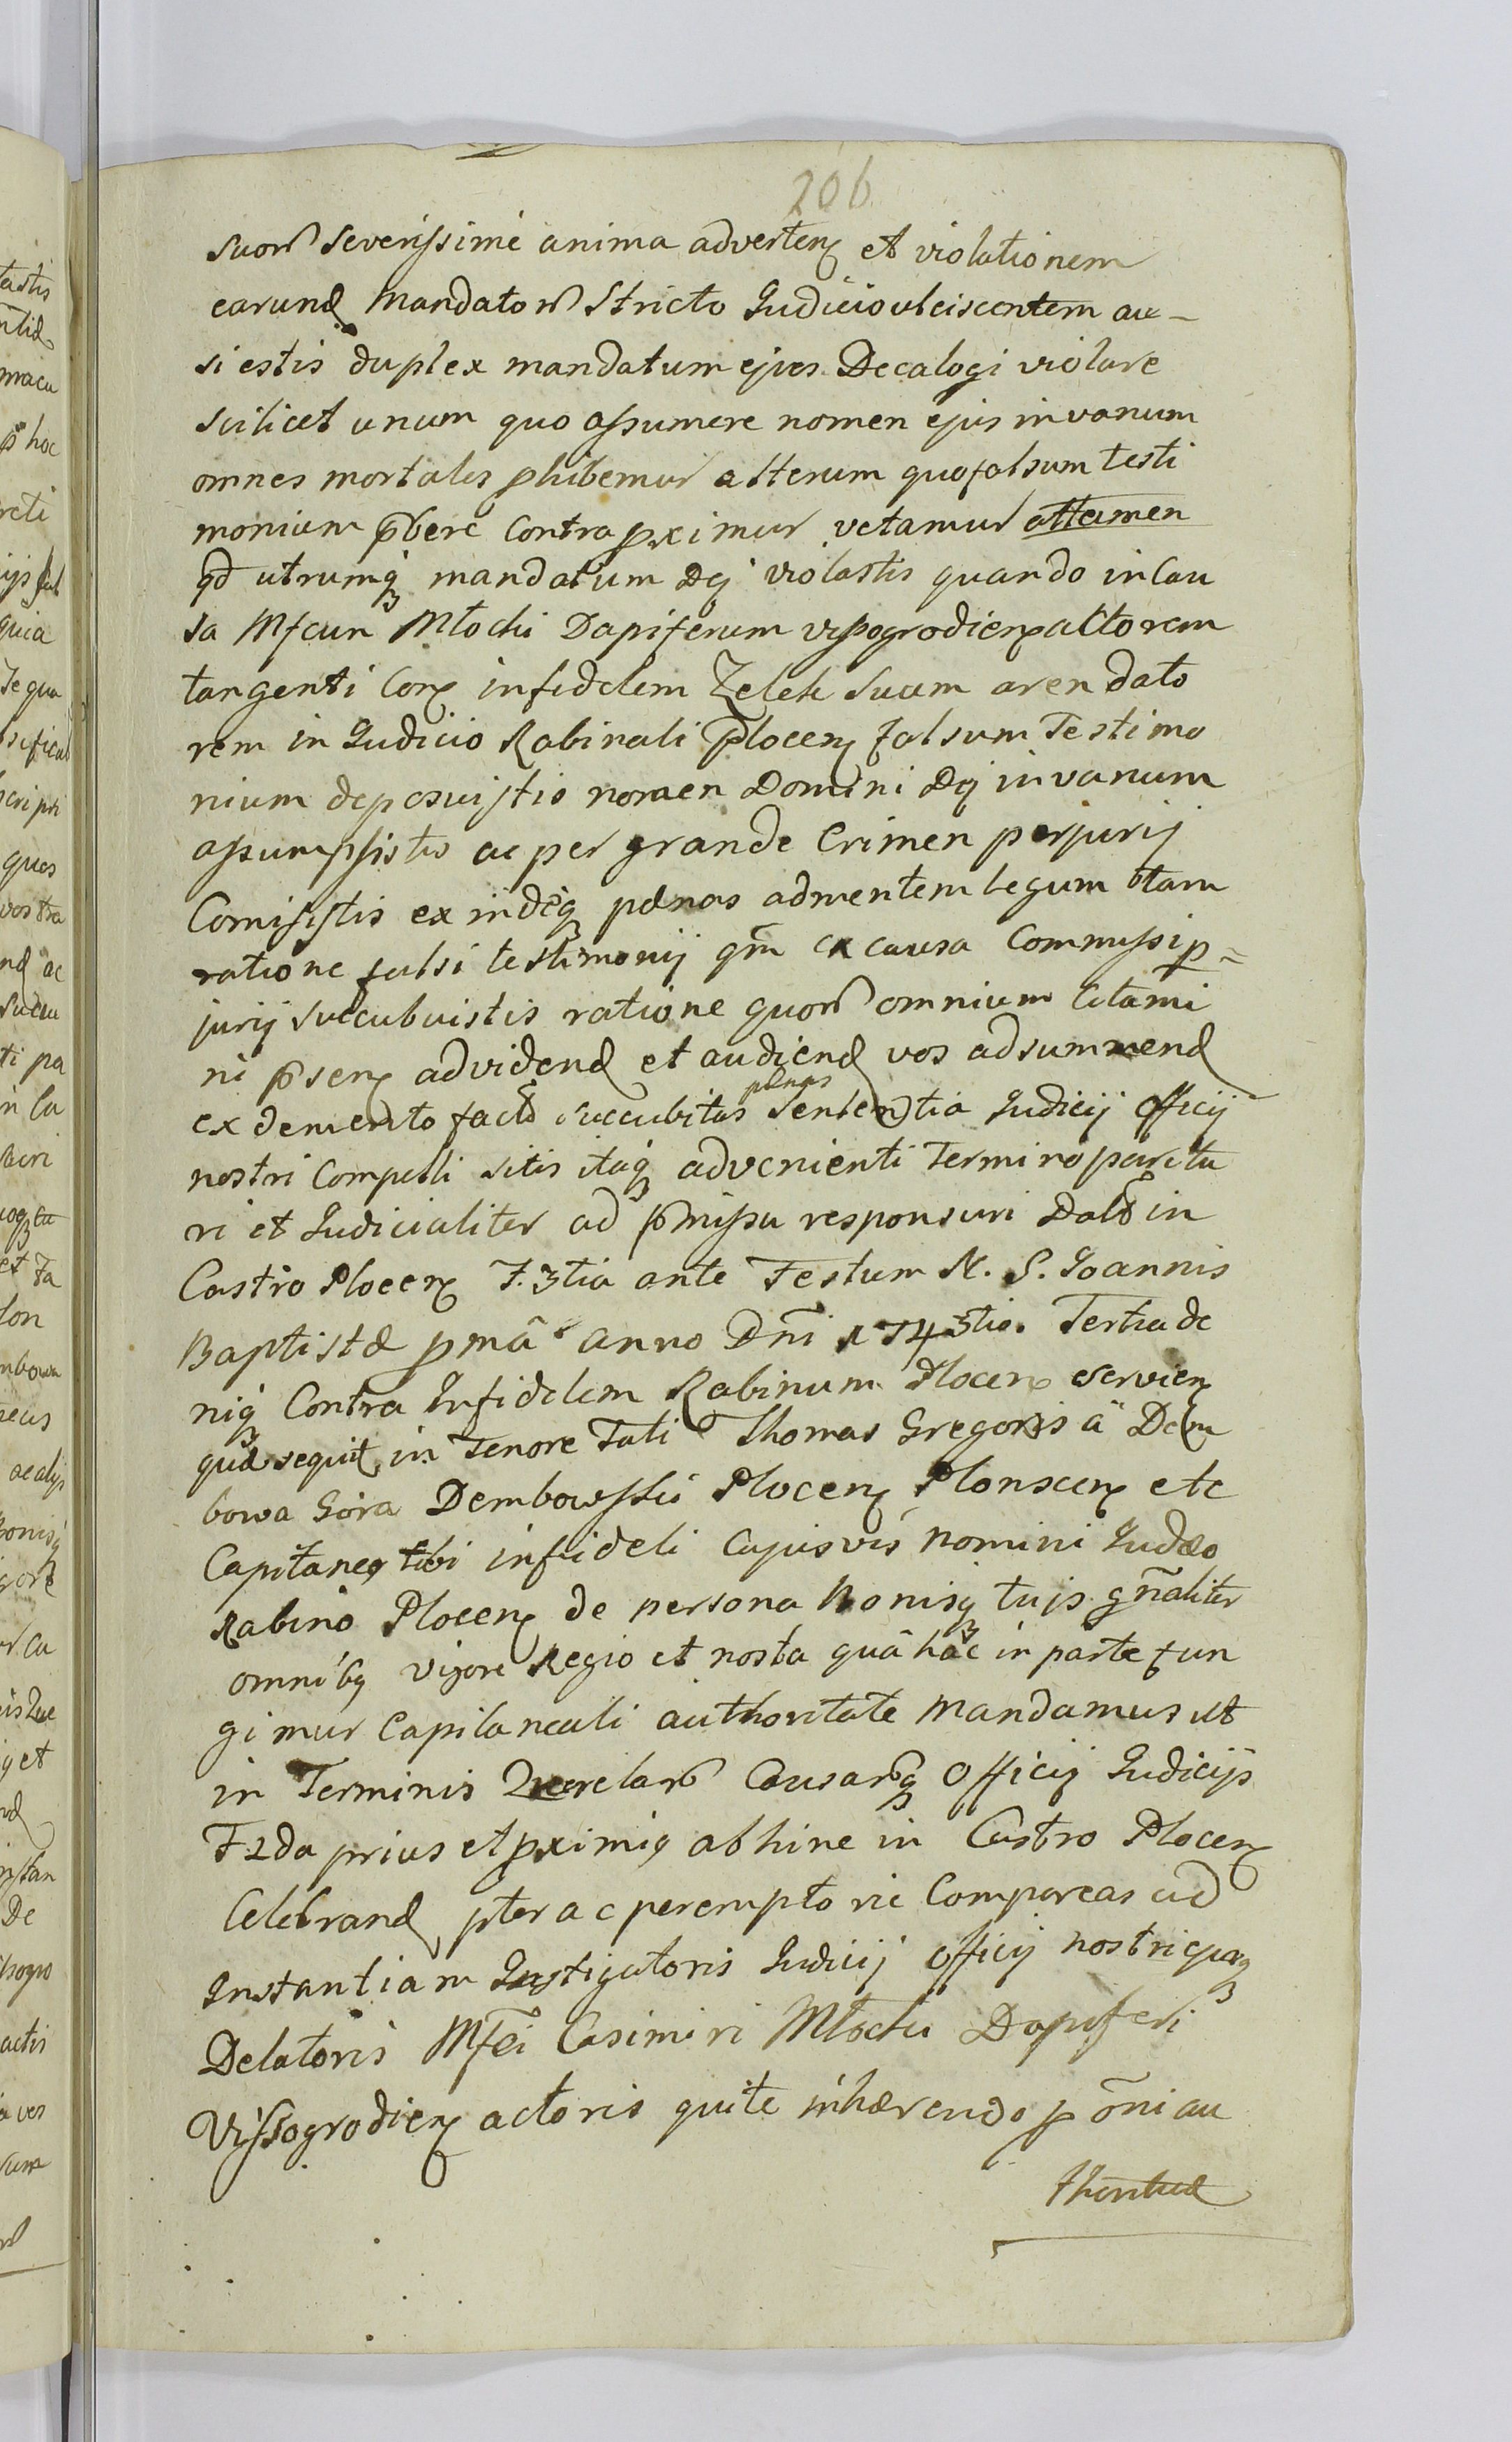 206
suorũ severissime anima adverten et violationem
earund mandatorũ Stricto Judicio ulciscentem au-
si estis duplex mandatum ejus Decalogi violare
scilicet unum quo assumere nomen ejus in vanum
omnes mortales phibemur alterum quo falsum testi
monium p̄bere Contra pximũ vetamur attamen
qd utrumq mandatum Dej violastis quando in Cau
sa Mfcum Młocki Dapiferum vissogrodien actorem
tangenti Con infidelem Zelek suum arendato
rem in Judicio Rabinali Plocen falsum Testimo
nium deposuistis nomen Domini Dej in vanum
assumpsistis ac per grande Crimen perjurij
Comisistis exindeq pænas ad mentem legum tam
ratione falsi testimonij qm̃ ex causa Commissi p-
jurij succubuistis ratione quorũ omnium Citami
ni p̄sen ad vidend et audiend vos ad summend
ex demerito facto succubitas pænas Sententia Judicij Officij
nostri Compelli sitis itaq advenienti Termino paritu
ri et Judicialiter ad p̄missa responsuri Dat in
Castro Plocen F. 3tia ante Festum N. S. Joannis
Baptistæ pmã anno Dni 1743tio. Tertia de
niq Contra Infidelem Rabinum Plocen servien
quæ sequit in Tenore Tali Thomas Gregoris â Dem
bowa Góra Dembowski Plocen Plonscen etc
Capitaney tibi infideli Cujusvis nomini Judæo
Rabino Plocen de persona Bonisq tuis gñaliter
omniby vigore Regio et nostra quâ hac in parte fun
gimur Capitaneali authoritate Mandamus ut
in Terminis Querelarũ Causarũq Officij Judicijs
F 2da prius et pximiq abhinc in Castro Plocen
Celebrand pter ac peremptorie Compareas ad
Instantiam Instigatoris Judicij Officij nostri ejusq
Delatoris Mfci Casimiri Młocki Dapiferi
Vissogrodien actoris qui te inhærendo p oni au
thoritæ